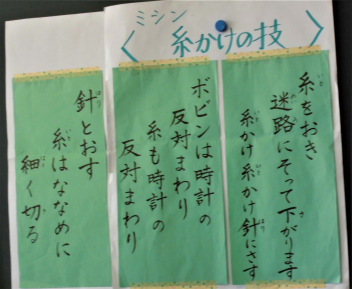 ミシン
〈糸かけの技〉
糸をおき
迷路にそって下がります
糸かけ糸かけ針にさす
ボビンは時計の
反対まわり
糸も時計の
反対まわり
針とおす
糸はななめに
細く切る